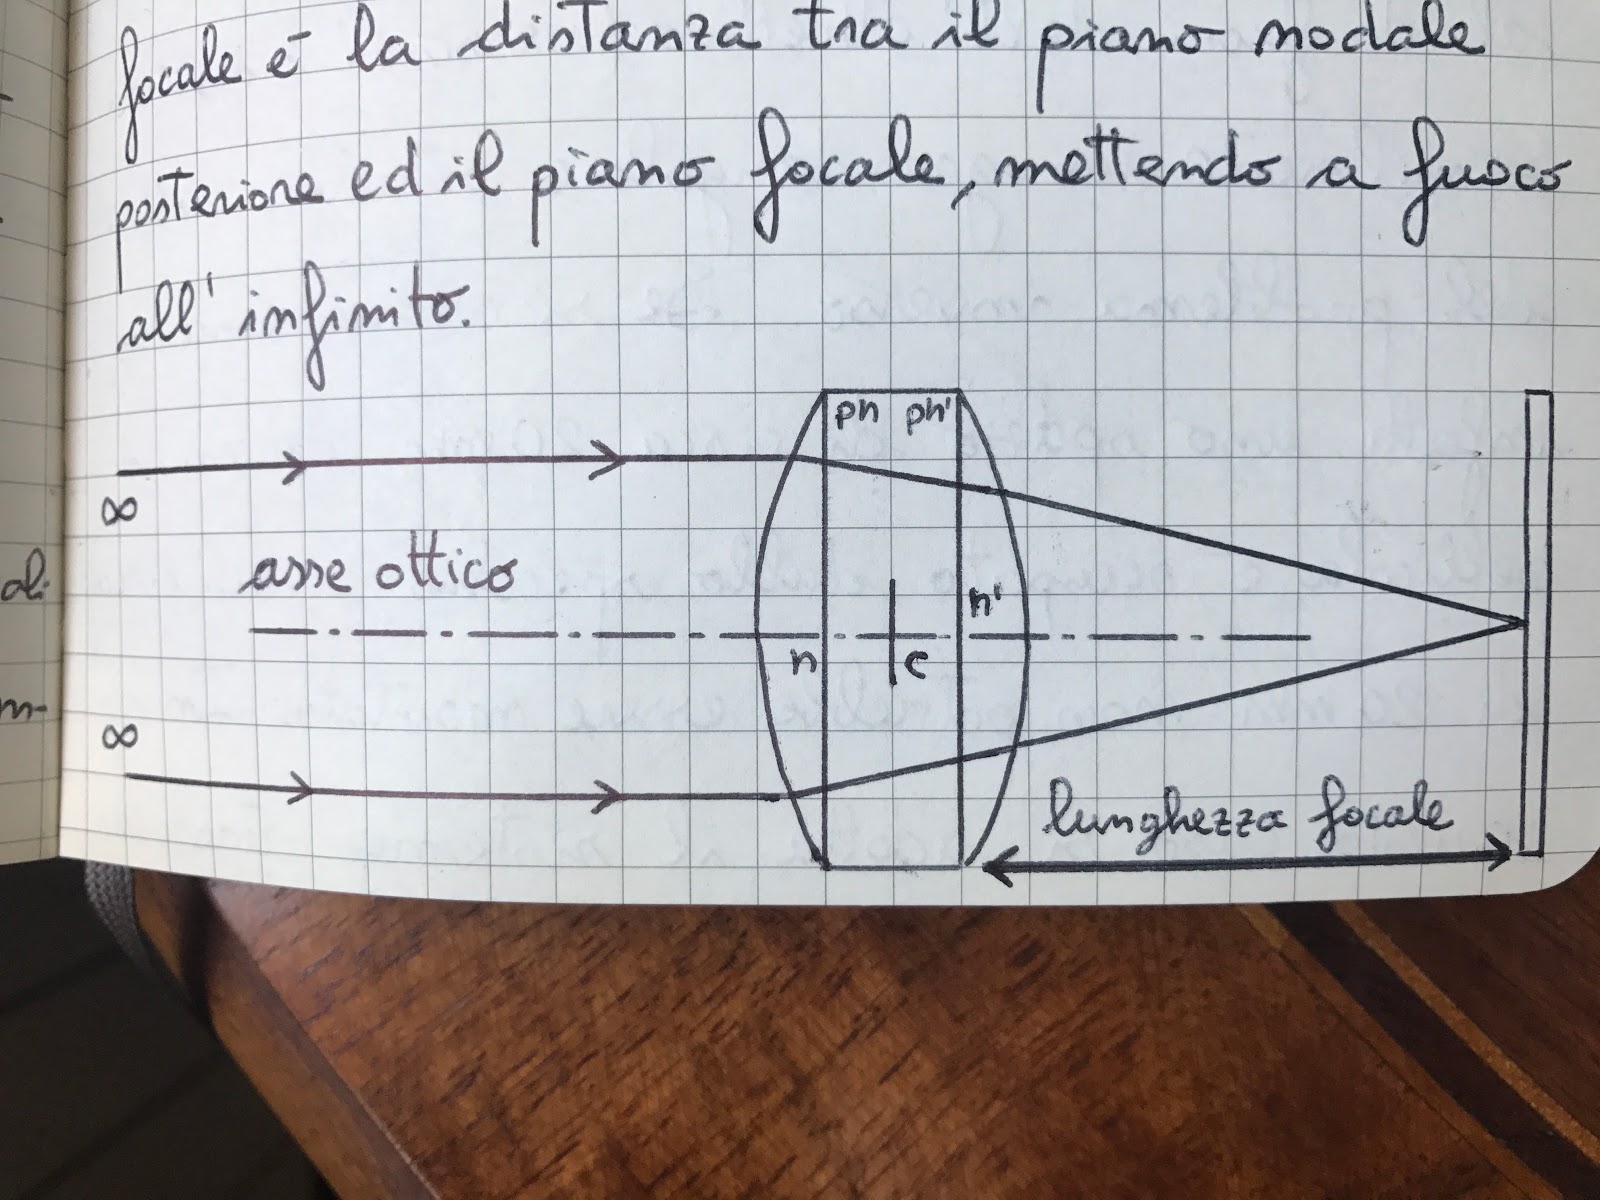 focale è la distanza tra il piano nodale
posteriore ed il piano focale, mettendo a fuoco
all'infinito.
pn pn'
∞
asse ottico
n'
n c
∞
lunghezza focale